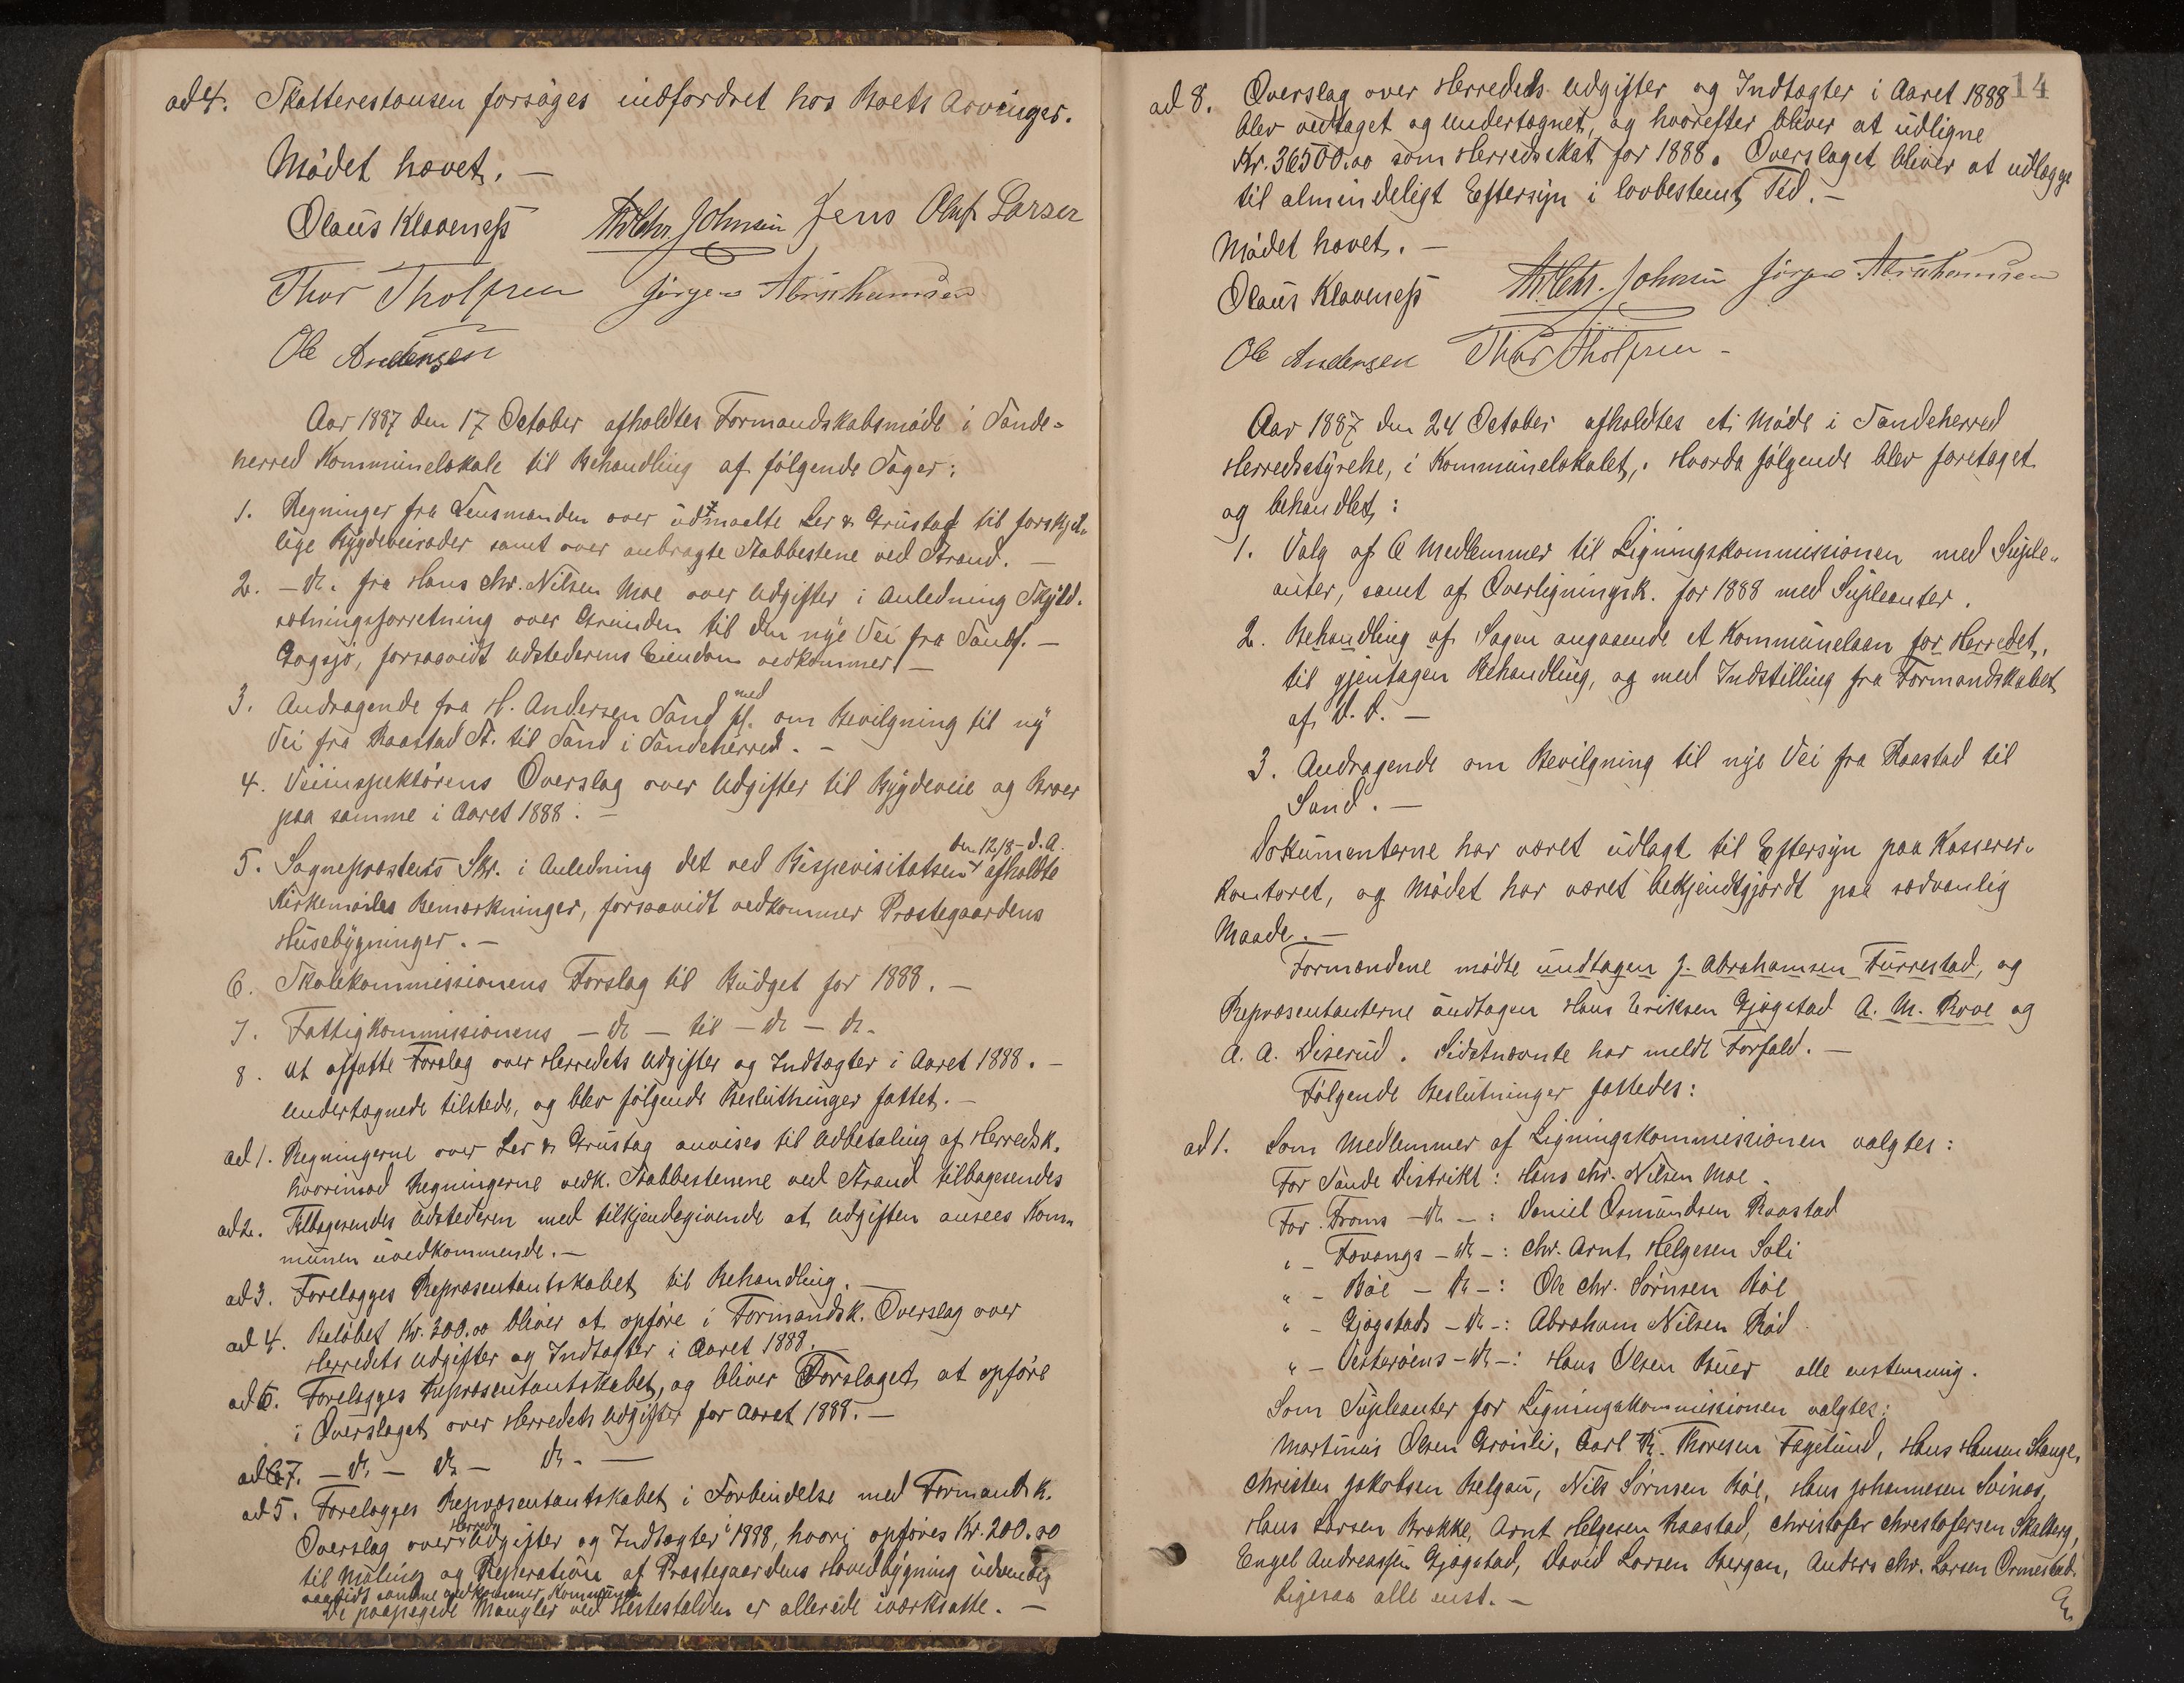 ad 4. Skatterestansen forsøges indfordret hos Boets Arvinger.
Mødet hævet. —
Olaus Klaveness Johnsen Jens Oluf Larsen
Thor Tholfsen Jørgen Abrahamsen
Ole Andersen
Aar 1887 den 17 October afholdtes Formandskabsmøde i Sande-
herred Kommunelokale til Behandling af følgende Sager:
1. Regninger fra Lensmanden over udmaalte Ler & Grustag til forskjel-
lige Bygdeveiroder samt over anbragte Stabbestene ved Strand. —
2. — do. fra Hans Chr. Nilsen Moe over Udgifter i Anledning Skyld-
sætningsforretning over Grunden til den nye Vei fra Sandf. —
Gogsjø, forsaavidt Udstederens Eiendom vedkommer. —
3. Andragende fra H. Andersen Sand med fl. om Bevilgning til ny
Vei fra Raastad St. til Sand i Sandeherred. —
4. Veiinspektørens Overslag over Udgifter til Bygdeveie og Broer
paa samme i Aaret 1888. —
5. Sognepræstens Skr. i Anledning det ved Bispevisitatsen den 12/8 d. A. afholdte
Kirkemødes Bemærkninger, forsaavidt vedkommer Præstegaardens
Husebygninger. —
6. Skolekommissionens Forslag til Budget for 1888. —
7. Fattigkommissionens — do — til — do — do.
8. At affatte Forslag over Herredets Udgifter og Indtægter i Aaret 1888. —
Undertegnede tilstede, og blev følgende Beslutninger fattet. —
ad 1. Regningerne over Ler & Grustag anvises til Udbetaling af Herredsk.
hvorimod Regningerne vedk. Stabbestenene ved Strand tilbagesendes
ad 2. Tilbagesendes Udstederen med tilkjendegivende at Udgiften ansees Kom-
munen uvedkommende. —
ad 3. Forelægges Repræsentantskabet til Behandling. —
ad 4. Beløbet Kr. 300.00 bliver at opføre i Formandsk. Overslag over
Herredets Udgifter og Indtægter i Aaret 1888. —
ad 6. Forelægges Repræsentantskabet, og bliver Forslaget at opføre
i Overslaget over Herredets Udgifter for Aaret 1888. —
ad 7. — do — do — do. —
ad 5. Forelægges Repræsentantskabet i Forbindelse med Formandsk.
Overslag over Herreds Udgifter og Indtægter i 1888, hvori opføres Kr. 200.00
til Maling og Reperation af Præstegaardens Hovedbygning udvendig
saavidt samme vedkommer Kommunen
De paapegede Mangler ved Hestestalden er allerede iværksatte. —
14
ad 8. Overslag over Herredets Udgifter og Indtægter i Aaret 1888
blev vedtaget og undertegnet, og hvorefter bliver at udligne
Kr. 36500.00 som Herredsskat for 1888. Overslaget bliver at udlægge
til almindeligt Eftersyn i lovbestemt Tid. —
Mødet hævet. —
Olaus Klaveness Johnsen Jørgen Abrahamsen
Ole Andersen Thor Tholfsen —
Aar 1887 den 24 October afholdtes et Møde i Sandeherred
Herredsstyrelse, i Kommunelokalet, hvorda følgende blev foretaget
og behandlet:
1. Valg af 6 Medlemmer til Ligningskommissionen med Suple-
anter, samt af Overligningsk. for 1888 med Supleanter.
2. Behandling af Sagen angaaende et Kommunelaan for Herredet,
til gjentagen Behandling, og med Indstilling fra Formandskabet
af D. D. —
3. Andragende om Bevilgning til nye Vei fra Raastad til
Sand. —
Dokumenterne har været udlagt til Eftersyn paa Kasserer-
kontoret, og Mødet har været bekjendtgjordt paa sædvanlig
Maade. —
Formændene mødte undtagen J. Abrahamsen Furrestad, og
Repræsentanterne undtagen Hans Eriksen Gjøgstad A. M. Roe og
A. A. Diserud. Sidstnævnte har meldt Forfald. —
Følgende Beslutninger fattedes:
ad 1. Som Medlemmer af Ligningskommissionen valgtes:
For Sande Distrikt: Hans Chr. Nilsen Moe.
For Froms — do —: Daniel Osmundsen Raastad
" — Fevangs — do —: Chr. Arnt Helgesen Soli
" — Bøe — do —: Ole Chr. Sørnsen Bøe
" — Gjøgstads — do —: Abraham Nilsen Rød
" — Vesterøens — do —: Hans Olsen Buer alle enstemmig.
Som Supleanter for Ligningskommissionen valgtes:
Martinus Olsen Grønli, Carl Th. Thoresen Fagelund, Hans Hansen Stange,
Christen Jakobsen Belgau, Nils Sørnsen Bøe, Hans Johannesen Svines,
Hans Larsen Brekke, Arnt Helgesen Raastad, Christofer Christofersen Skalberg,
Engel Andreassen Gjøgstad, David Larsen Bergan, Anders Chr. Larsen Ormestad.
Ligesaa alle enst. —